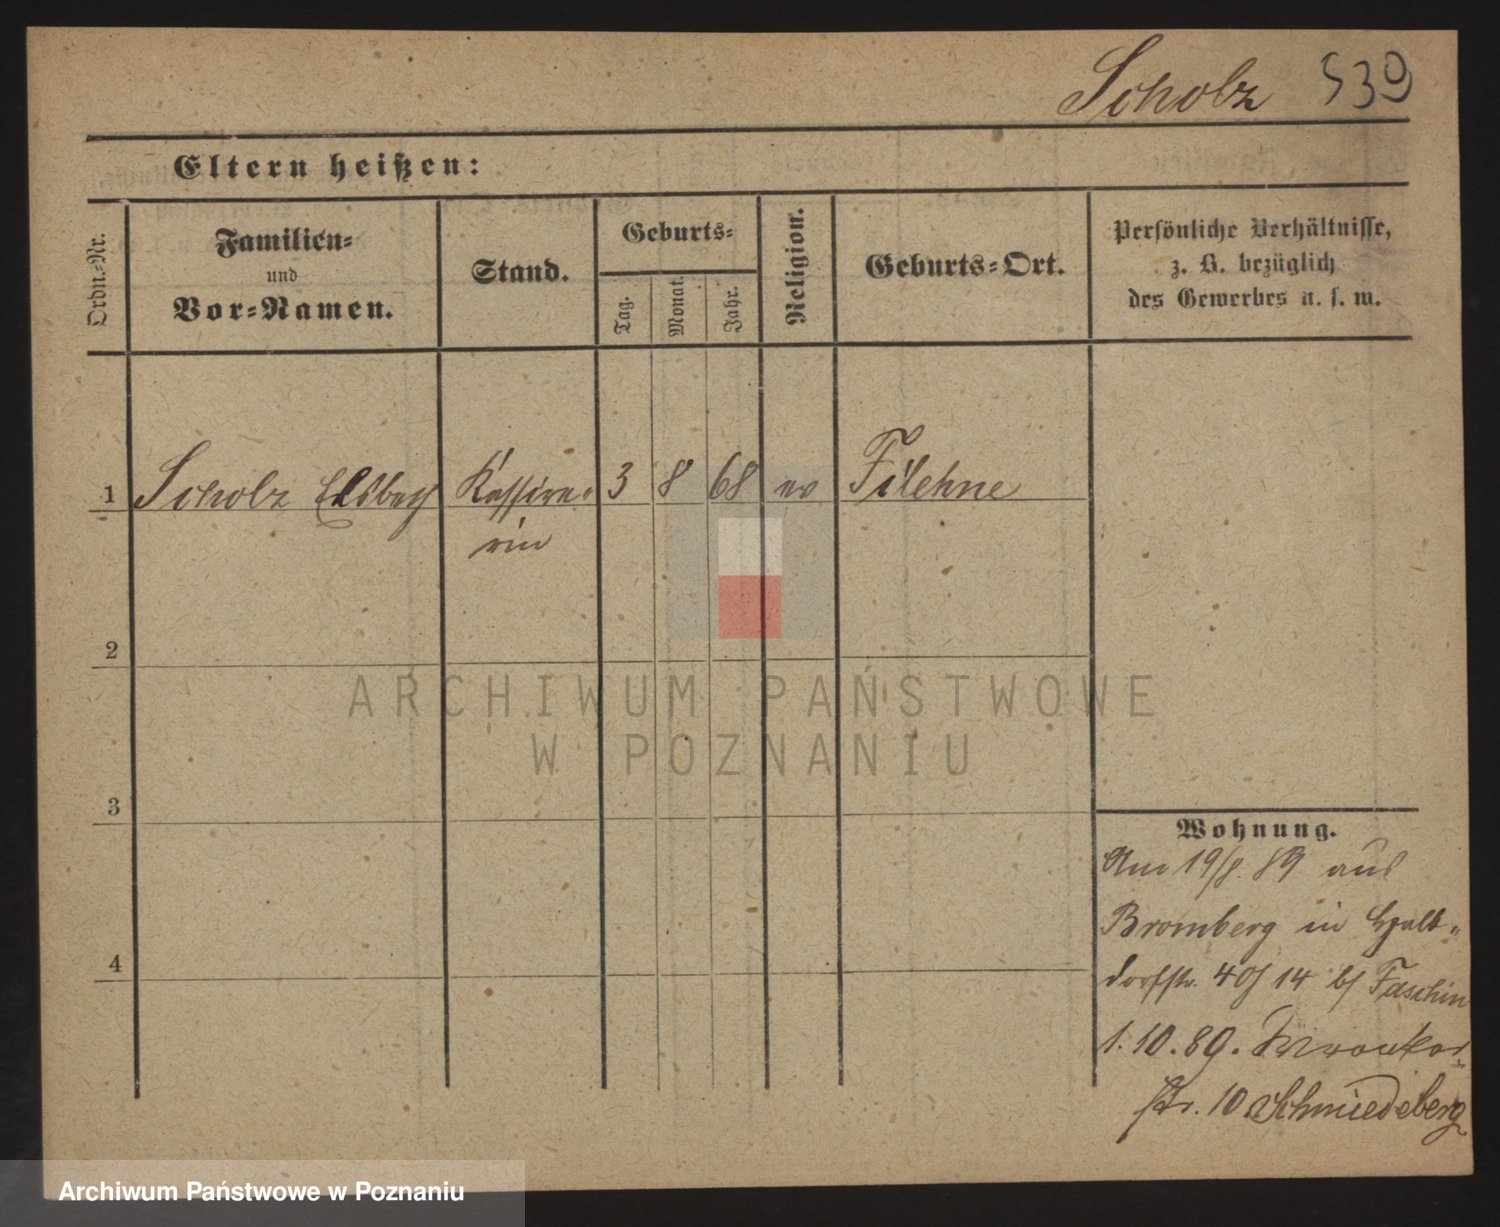 Scholz 539
Eltern heißen:
Ordn.-Nr.
Familien-
und
Vor-Namen.
Stand.
Geburts-
Tag.
Monat.
Jahr.
Religion.
Geburts-Ort.
Persönliche Verhältnisse,
z. B. bezüglich
des Gewerbes u. s. w.
1 Scholz Elsbeth Kassire- 3 8 68 ev Filehne
rin
2
3
4
Wohnung.
Am 19/8. 89 aus
Bromberg in Halb-
dorfstr. 40/14 b/ Faschin
1.10.89. Wronker-
str. 10 Schmiedeberg
ARCHIWUM PAŃSTWOWE
W POZNANIU
Archiwum Państwowe w Poznaniu